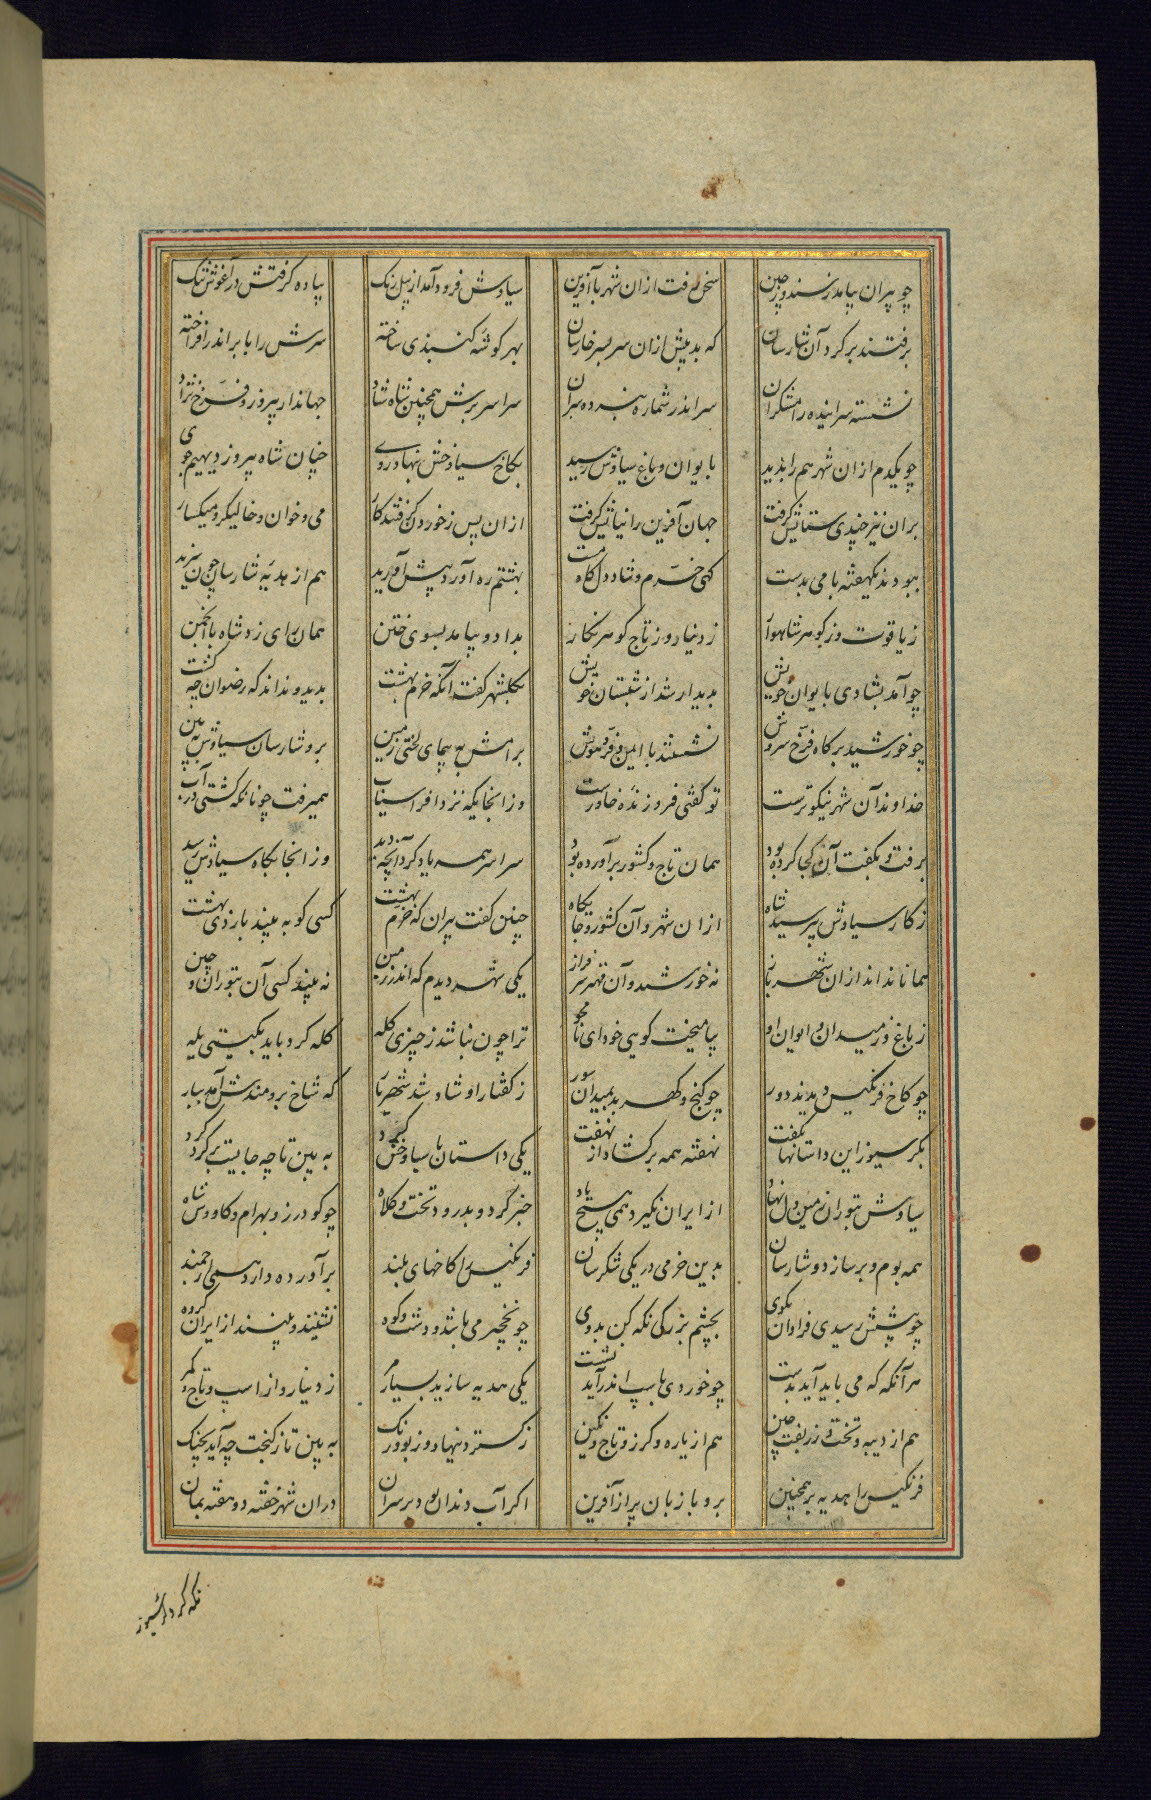 چو پیران بیامد ز سند و ز چین سخن رفت ازان شهر با آفرین سیاوش فرود آمد از پیل رنگ پیاده گرفتش در آغوش تنگ
برفتند بر گرد آن شارسان که بد پیش ازان سر بسر خارسان بهر گوشهٔ گنبذی ساخته سرش را بابر اندر افراخته
نشسته سراینده رامشگران سر اندر شماره هنر ده سران سراسر برش همچنین شاه شاد جهاندار پیروز و فرخ نژاد
چو یکدم ازان شهر هم رابدید بایوان و باغ سیاوش رسید بکاخ سیاوخش بنهاد روی چنان شاه پیروز دیهیم جوی
بران نیز چندی ستایش گرفت جهان آفرین را نیایش گرفت ازان پس بخوردن گرفتند کار می و خوان و خالیگر و میگسار
ببودند یکهفته با می بدست گهی خرم و شاد دل گاه مست بهشتم ره آورد پیش آورید هم از هدیهٔ شارسان چون سزید
ز یاقوت وز گوهر شاهوار ز دینار وز تاج گوهر نگار بداد و بیامد بسوی ختن همان رای زد شاه با انجمن
چو آمد بشادی بایوان خویش بدیدار شد از شبستان خویش بگلشهر گفت آنکه خرم بهشت بدید و نداند که رضوان چه کشت
چو خورشید بر گاه فرخ سروش نشستند با ایمن و فر و هوش برامش بپیمای لختی زمین برو شارسان سیاوش ببین
خداوند آن شهر نیکوترست تو گفتی فروزندهٔ خاورست وز انجایگه نزد افراسیاب همیرفت چونانکه کشتی در آب
برفت و بگفت آن کجا کرده بود همان تاج و کشور برآورده بود سراسر همه یاد کرد آنچه دید وز انجا بگاه سیاوش رسید
ز کار سیاوش بپرسید شاه ازان شهر و آن کشور و جایگاه چنین گفت پیران که خرم بهشت کسی کو ببیند باردی بهشت
همانا نداند ازان شهر باز نه خورشید و آن مهتر سرفراز یکی شهر دیدم که اندر زمین نبیند کسی آن بتوران و چین
ز باغ و ز میدان و ایوان او بیامیخت گویی خودای تا محو ترا چون نباشد ز چیزی گله گله کرد باید بگیتی یله
چو کاخ فرنگیس دیدند دور چو گنج و گهر بد بمیدان سور ز گفتار او شاد شد شهریار که شاخ برومندش آمد ببار
بگرسیوز این داستانها بگفت نهفته همه برگشاد از نهفت یکی داستان با سیاوخش گرد به بین تا چه جایست بر گرد گرد
سیاوش بتوران زمین دل نهاد از ایران نگیرد همی هیچ یاد خبر گرد و بدرود تخت و کلاه چو گودرز و بهرام و کاووس شاه
همه بوم و بر سازد و شارسان بدین خرمی در یکی شکرسان فرنگیس را کاخهای بلند برآورده دارد همی ارجمند
چو پیشش رسیدی فراوان بگوی بچشم بزرگی نگه کن بدوی چو نخچیر می باشد و دشت و کوه نشینند و بینند از ایران گروه
هر آنگه که می باید آید بدست چو خوردی باسپ اندر آید نشست یکی هدیه سازید بسیار مر ز دینار و از اسپ و تاج و کمر
هم از دیبه و تخت و زربفت چین هم از یاره و گرز و تاج و نگین ز گستردنیها و وز بو و رنگ به بین تا ز گنجت چه آید بچنگ
فرنگیس را هدیه بر همچنین برو با زبان پر از آفرین اگر آب دندان بود بر سران دران شهر خفته دو هفته بمان
نگه کرد گرسیوز